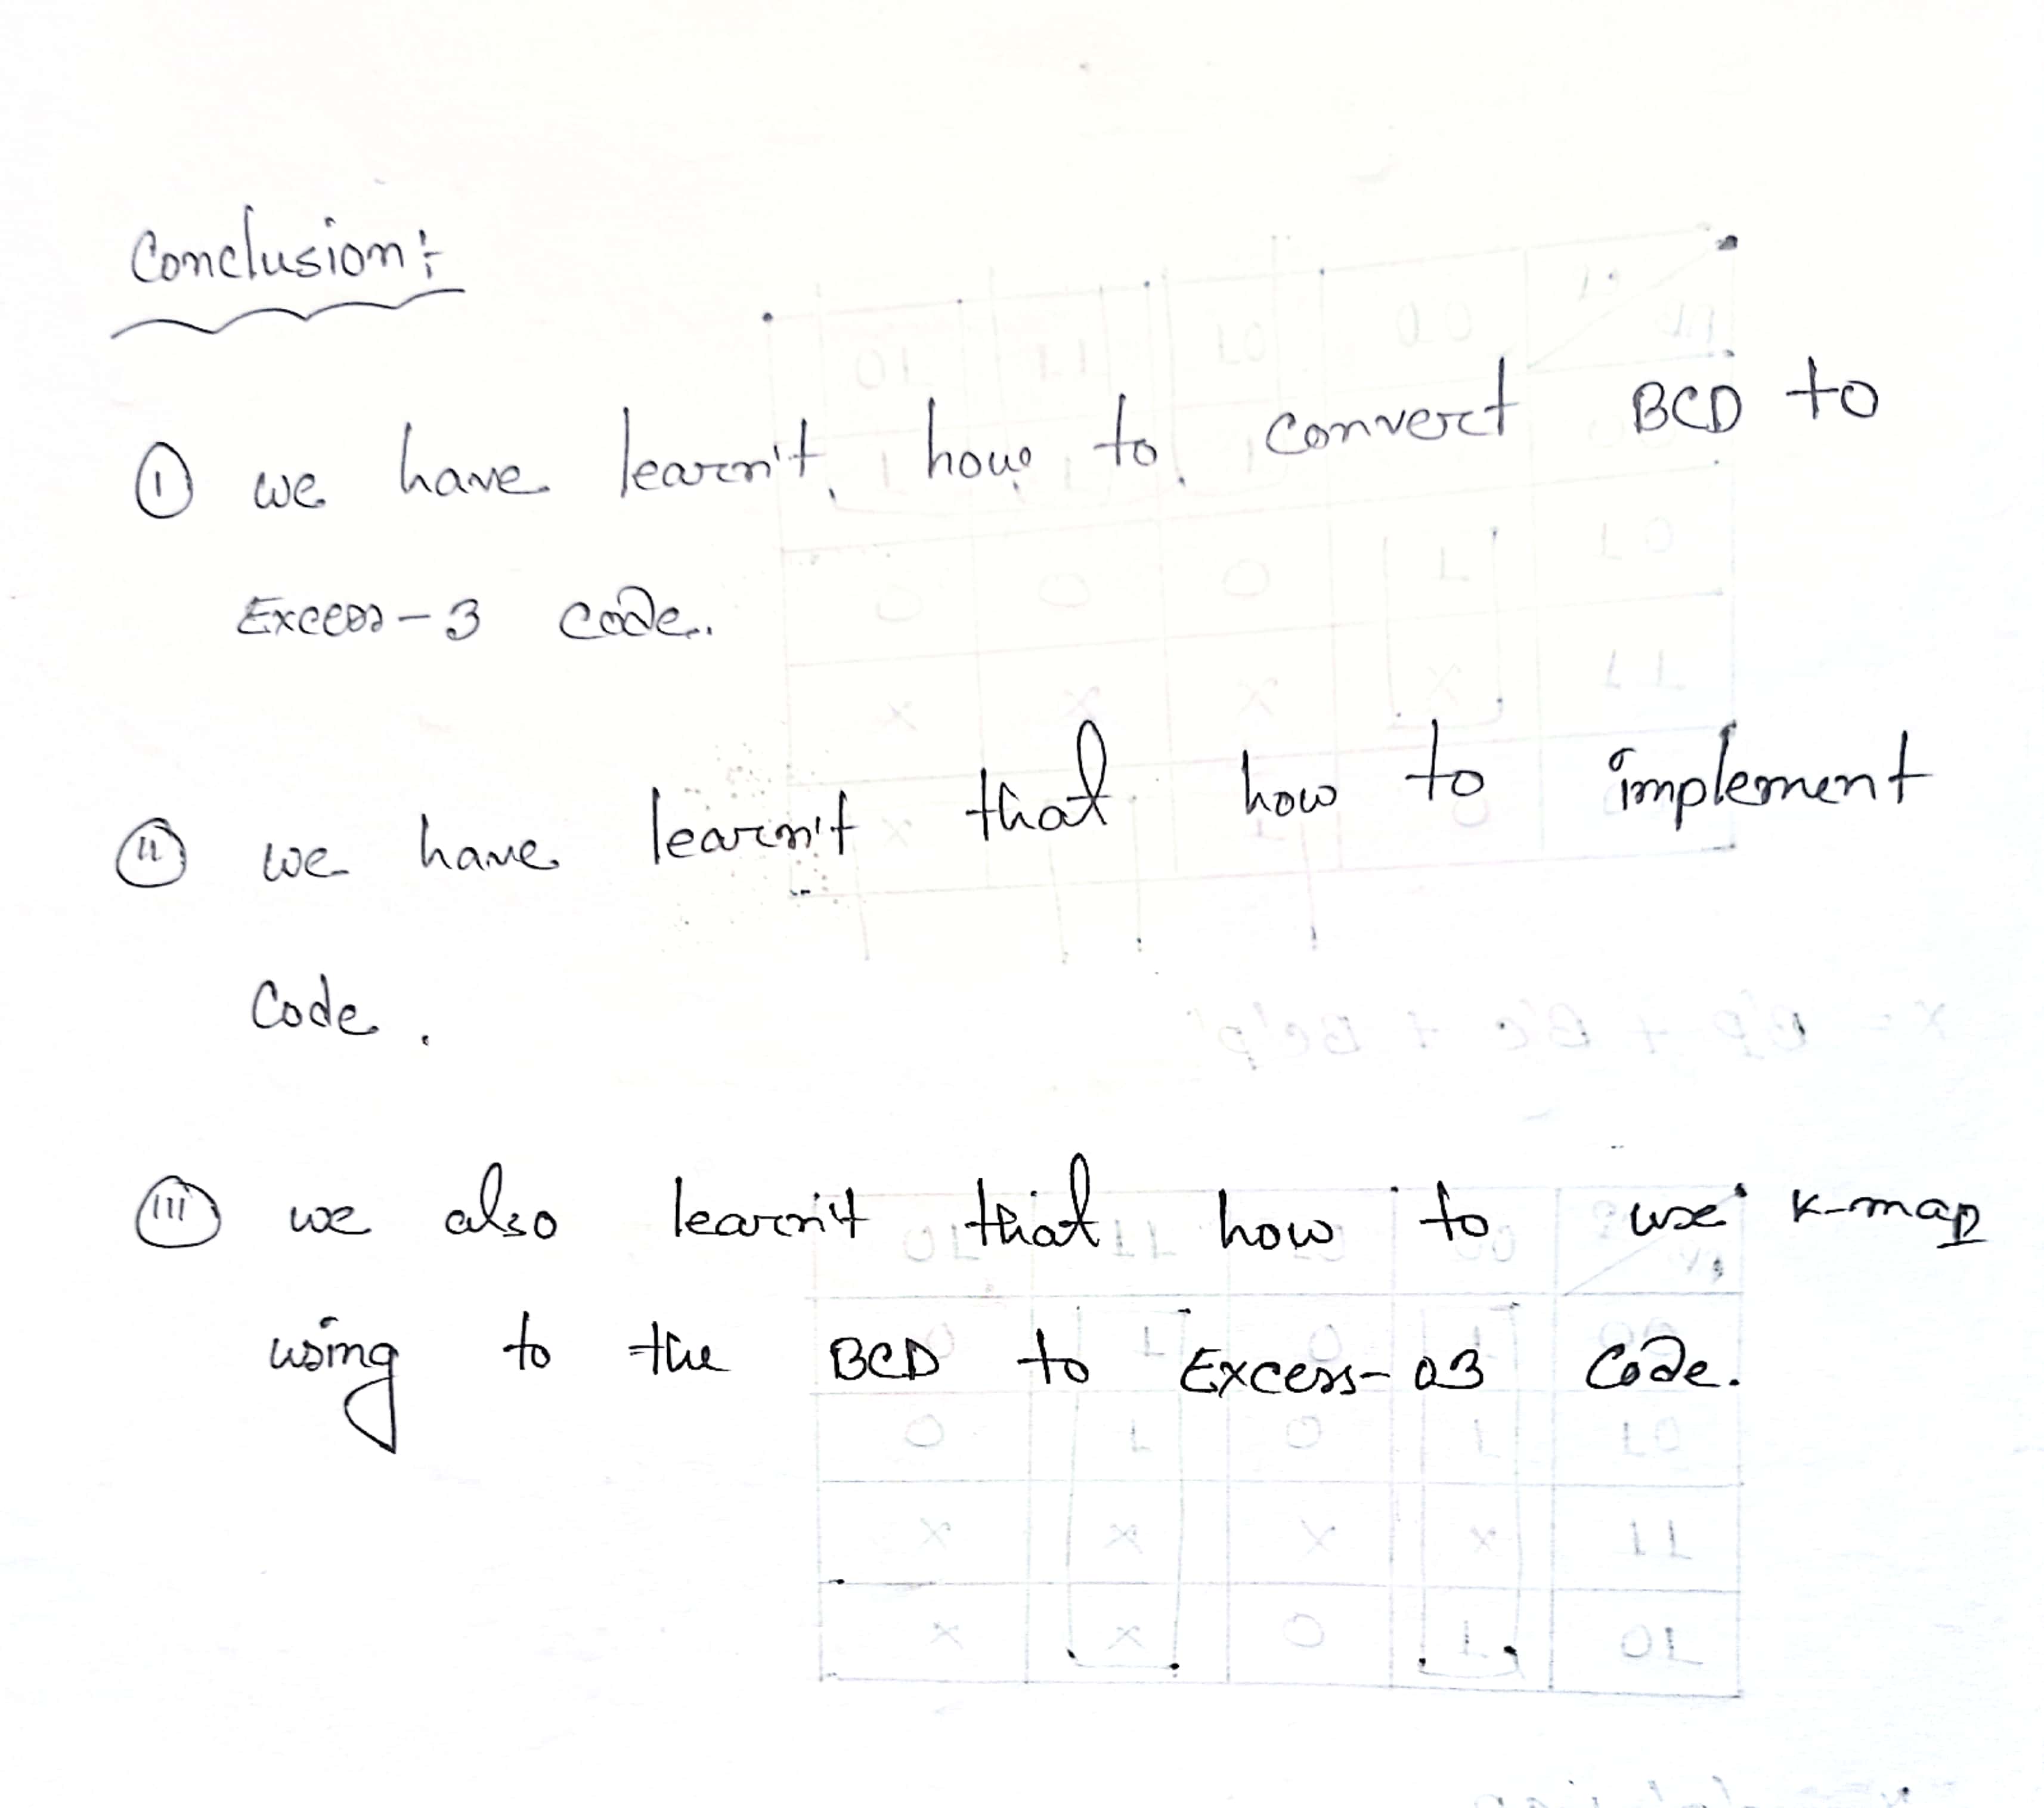 Conclusion:
(i) we have learn't how to convert BCD to
Excess-3 code.
(ii) we have learn't that how to implement
Code.
(iii) we also learn't that how to use K-map
using to the BCD to Excess-03 Code.